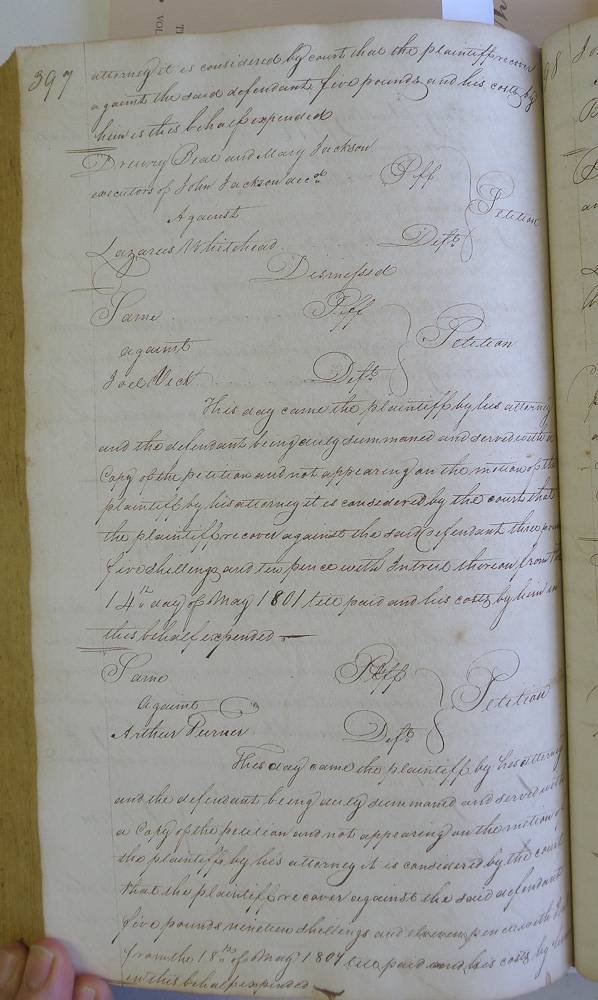 397
attorney it is considered by court that the plaintiff recover
against the said defendant five pounds and his costs by
him in this behalf expended
Drewry Beal and Mary Jackson
executors of John Jackson decd Plff
Against Petition
Lazarus Whitehead Deft
Dismissed
Same Plff
against Petition
Joel Vick Deft
This day came the plaintiff by his attorney
and the defendant being duly summoned and served with a
Copy of the petition and not appearing on the motion of the
plaintiff by his attorney it is considered by the court that
the plaintiff recover against the said defendant three
five shillings and ten pence with Intrest thereon from
14th day of May 1801 till paid and his costs by him in
this behalf expended
Same Plff
Against Petition
Arthur Turner Deft
This day came the plaintiff by his attorney
and the defendant being duly summoned and served with
a Copy of the petition and not appearing on the motion of
the plaintiff by his attorney it is considered by the court
that the plaintiff recover against the said defendant
five pounds nineteen shillings and eleven pence with
from the 18th of May 1804 till paid and his costs by
in this behalf expended